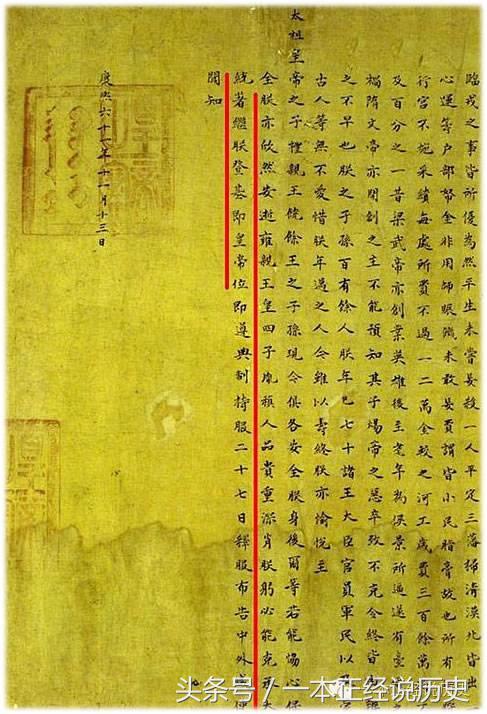 臨戎之事皆所優為然平生未嘗妄殺一人平定三藩掃清漠北皆出
心運籌戶部帑金非用師賑饑未敢妄費謂皆小民脂膏故也所有
行宮不施采繢每處所費不過一二萬金較之河工歲費三百餘萬
及百分之一昔梁武帝亦創業英雄後至耄年為侯景所逼遂有臺
禍隋文帝亦開創之主不能預知其子煬帝之惡卒致不克令終皆
之不早也朕之子孫百有餘人朕年已七十諸王大臣官員軍民以
古人等無不愛惜朕年邁之人今雖以壽終朕亦愉悅至
太祖皇帝之子禮親王饒餘王之子孫現今俱各安全朕身後爾等若能協心保
全朕亦欣然安逝雍親王皇四子胤禛人品貴重深肖朕躬必能克承大
統著繼朕登基即皇帝位即遵典制持服二十七日釋服布告中外咸使
聞知
康熙六十一年十一月十三日
头条号／一本正经说历史